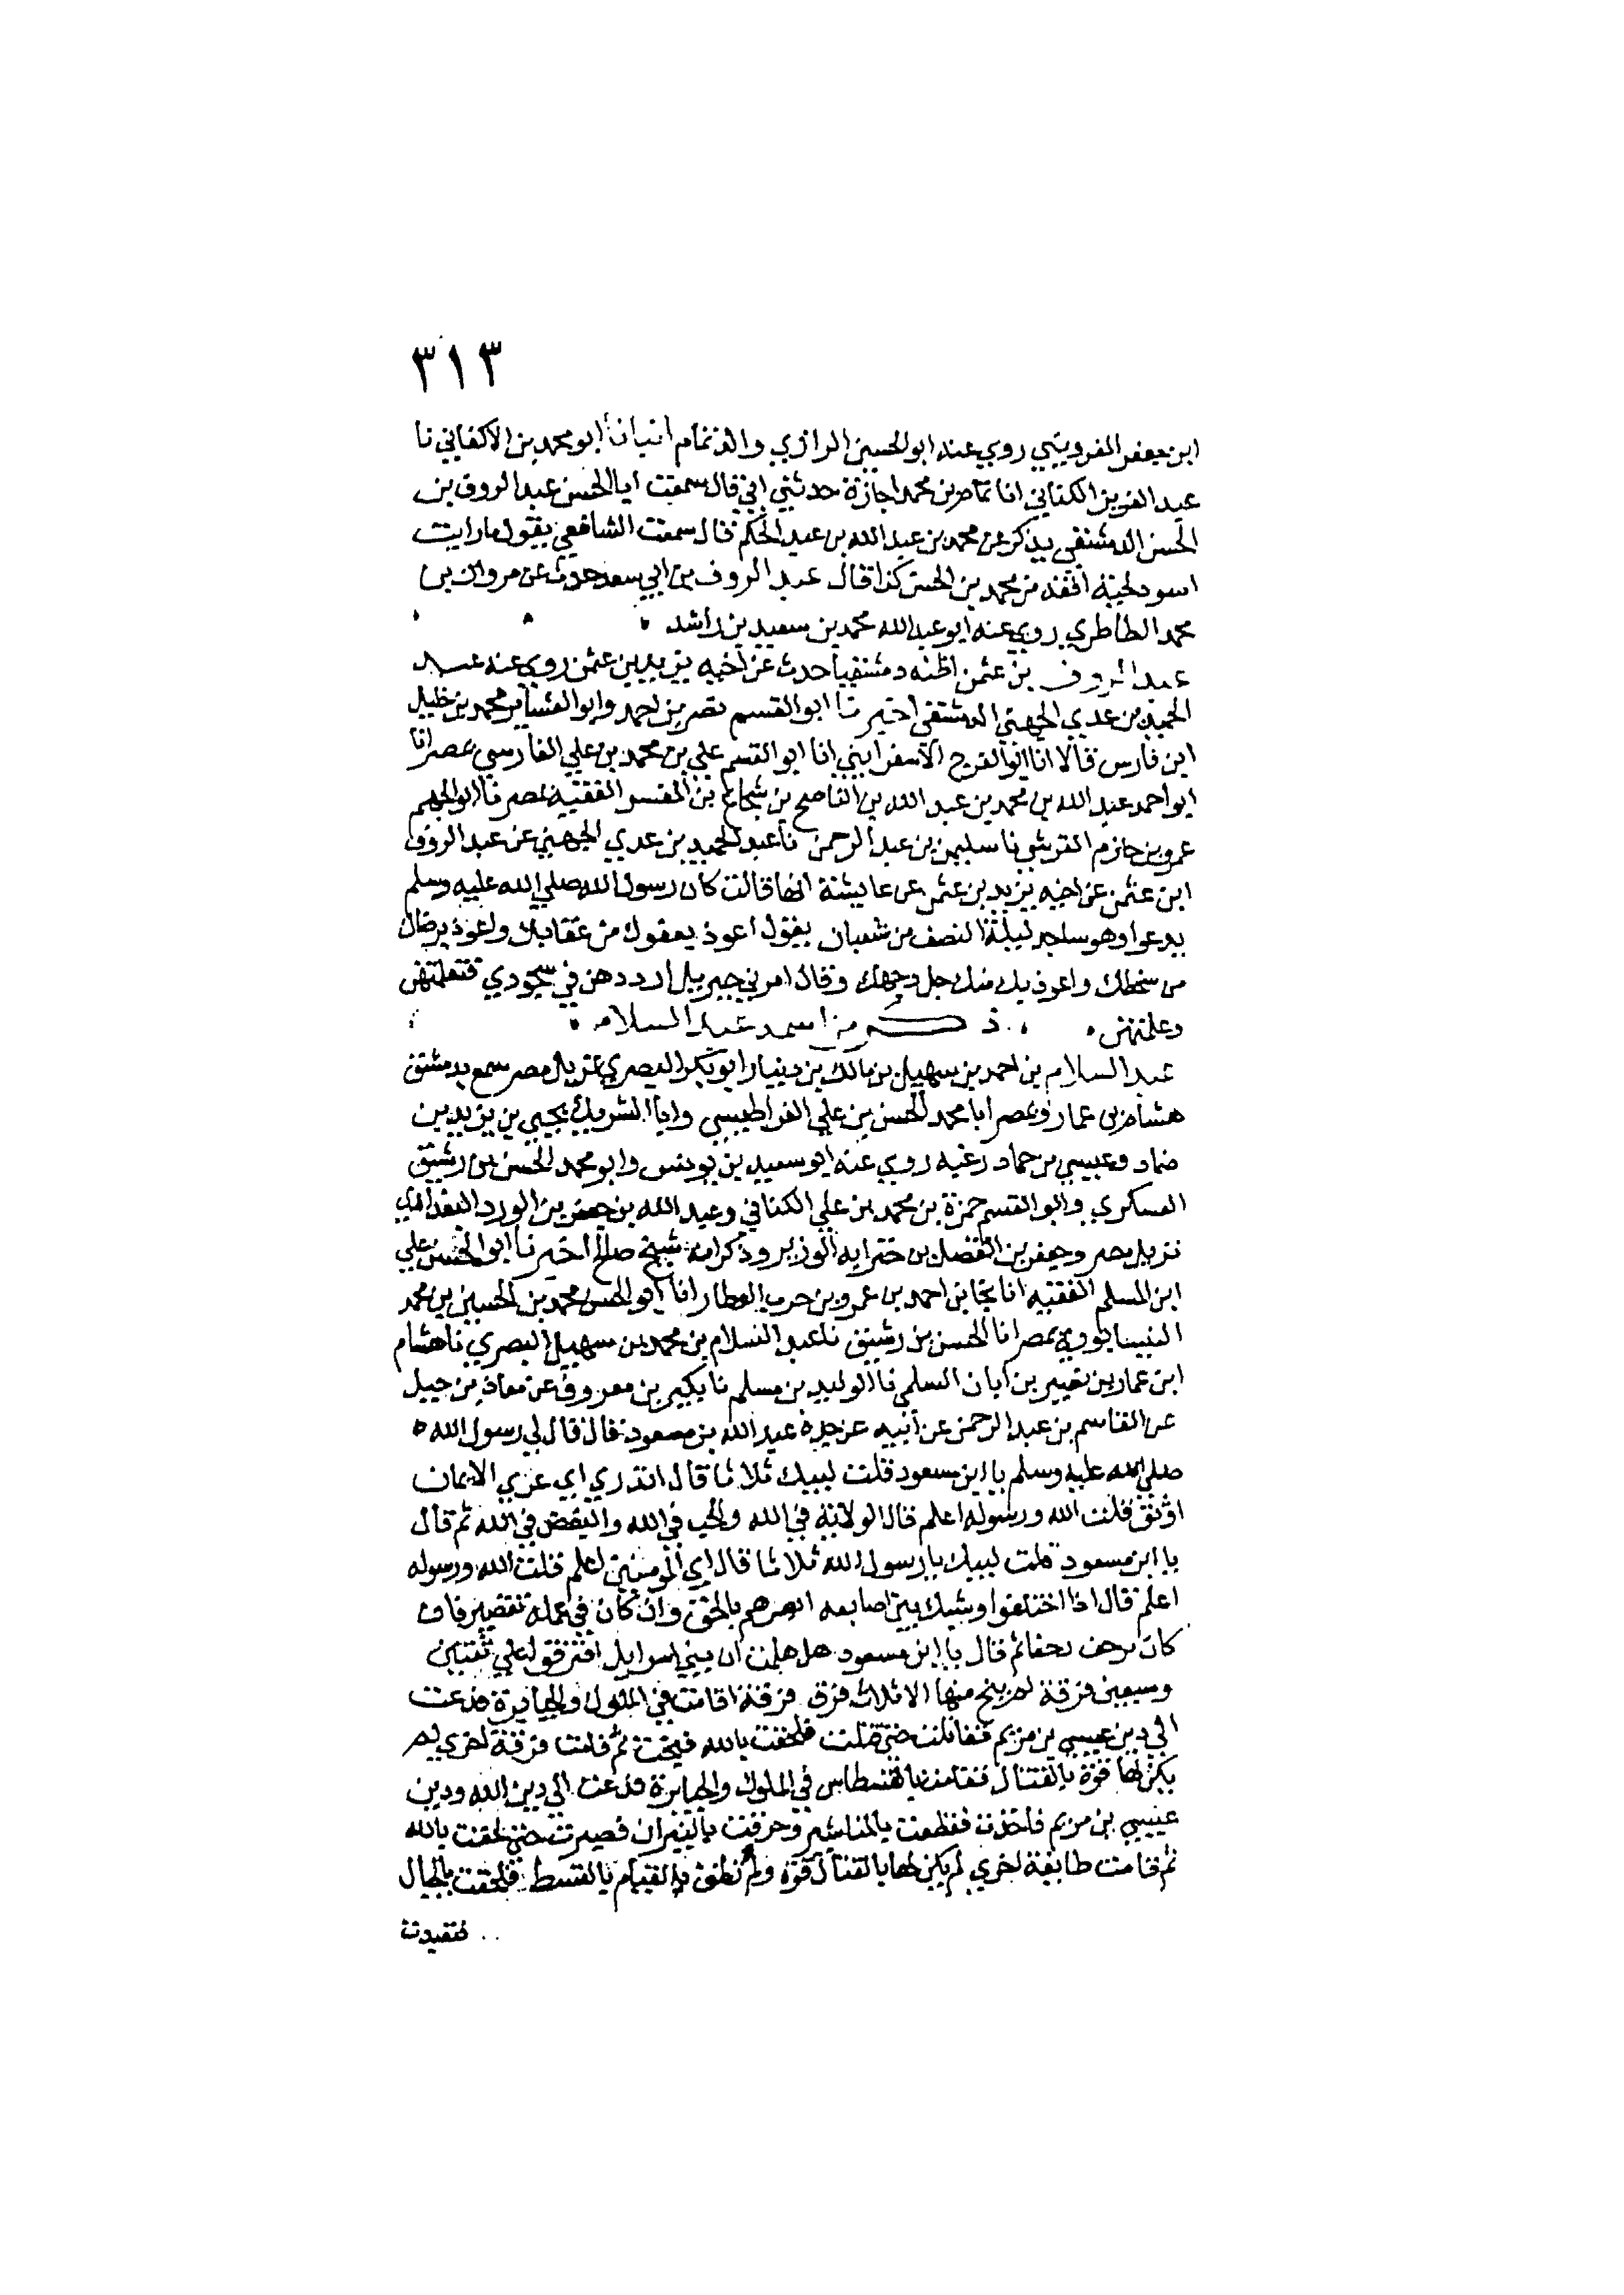 ٣١٣
ابن جعفر القزويني روي عنه ابو الحسين الرازي والد تمام انبانا ابو محمد بن الاكفاني نا
عبد العزيز الكتاني انا تمام بن محمد اجازة حدثني ابي قال سمعت ابا الحسن عبد الروف بن
الحسن الدمشقي يذكر عن محمد بن عبد الله بن عبد الحكم قال سمعت الشافعي يقول ما رايت
اسود لحية افقه من محمد بن الحسن كذا قال عبد الروف بن ابي سعد حدث عن مروان بن
محمد الطاطري روي عنه ابو عبد الله محمد بن سعيد بن راشد
عبد الروف بن عثمن اظنه دمشقيا حدث عن اخيه يزيد بن عثمن روي عنه عبد
الحميد بن عدي الجهني الدمشقي اخبرنا ابو القسم نصر بن احمد وابو العشاير محمد بن خليل
ابن فارس قالا انا ابو الفرج الاسفرايني انا ابو القسم علي بن محمد بن علي الفارسي بمصر انا
ابو احمد عبد الله بن محمد بن عبد الله بن الناصح بن شجاع بن المفسر الفقيه بمصر نا ابو الجهم
عمرو بن حازم القرشي نا سليمن بن عبد الرحمن نا عبد الحميد بن عدي الجهني عن عبد الروف
ابن عثمن عن اخيه يزيد بن عثمن عن عايشة انها قالت كان رسول الله صلي الله عليه وسلم
يدعوا وهو ساجد ليلة النصف من شعبان يقول اعوذ بعفوك من عقابك واعوذ برضاك
من سخطك واعوذ بك منك جل وجهك وقال امرني جبريل ان ارددهن في سجودي فتعلمتهن
وعلمتهن ذكر من اسمه عبد السلام
عبد السلام بن احمد بن سهيل بن مالك بن دينار ابو بكر البصري نزيل مصر سمع بدمشق
هشام بن عمار وبمصر ابا محمد الحسن بن علي القراطيسي وابا الشريك يحيي بن يزيد بن
ضماد وعيسي بن حماد زغبه روي عنه ابو سعيد بن يونس وابو محمد الحسن بن رشيق
العسكري وابو القسم حمزة بن محمد بن علي الكناني وعبد الله بن جعفر بن الورد البغدادي
نزيل مصر وجعفر بن الفضل بن خنزابه الوزير وذكر انه شيخ صالح اخبرنا ابو الحسن علي
ابن المسلم الفقيه انا نجا بن احمد بن عمرو بن حرب العطار انا ابو الحسن محمد بن الحسين بن محمد
النيسابوري بمصر انا الحسن بن رشيق نا عبد السلام بن محمد بن سهيل البصري نا هشام
ابن عمار بن نصير بن ابان السلمي نا الوليد بن مسلم نا بكير بن معروف عن معاذ بن جبل
عن القاسم بن عبد الرحمن عن ابيه عن جده عبد الله بن مسعود قال قال لي رسول الله
صلي الله عليه وسلم يا ابن مسعود قلت لبيك ثلاثا قال اتدري اي عري الايمان
اوثق قلت الله ورسوله اعلم قال الولاية في الله والحب في الله والبغض في الله ثم قال
يا ابن مسعود قلت لبيك يا رسول الله ثلاثا قال اي المومنين اعلم قلت الله ورسوله
اعلم قال اذا اختلفوا وشبك بين اصابعه ابصرهم بالحق وان كان في عمله تقصير وان
كان يزحف زحفا ثم قال يا ابن مسعود هل علمت ان بني اسرايل افترقوا علي ثنتين
وسبعين فرقة لم ينج منها الا ثلاث فرق فرقة اقامت في الملوك والجبابرة فدعت
الي دين عيسي بن مريم فقاتلت حتي قتلت فلحقت بالله فنجت ثم قامت فرقة اخري لم
يكن لها قوة بالقتال فقامت بالقسطاس في الملوك والجبابرة فدعت الي دين الله ودين
عيسي بن مريم فاخذت فقطعت بالمناشير وحرقت بالنيران فصبرت حتي لحقت بالله
ثم قامت طايفة اخري لم يكن لها بالقتال قوة ولم تطق بالقيام بالقسط فلحقت بالجبال
فتعبدت